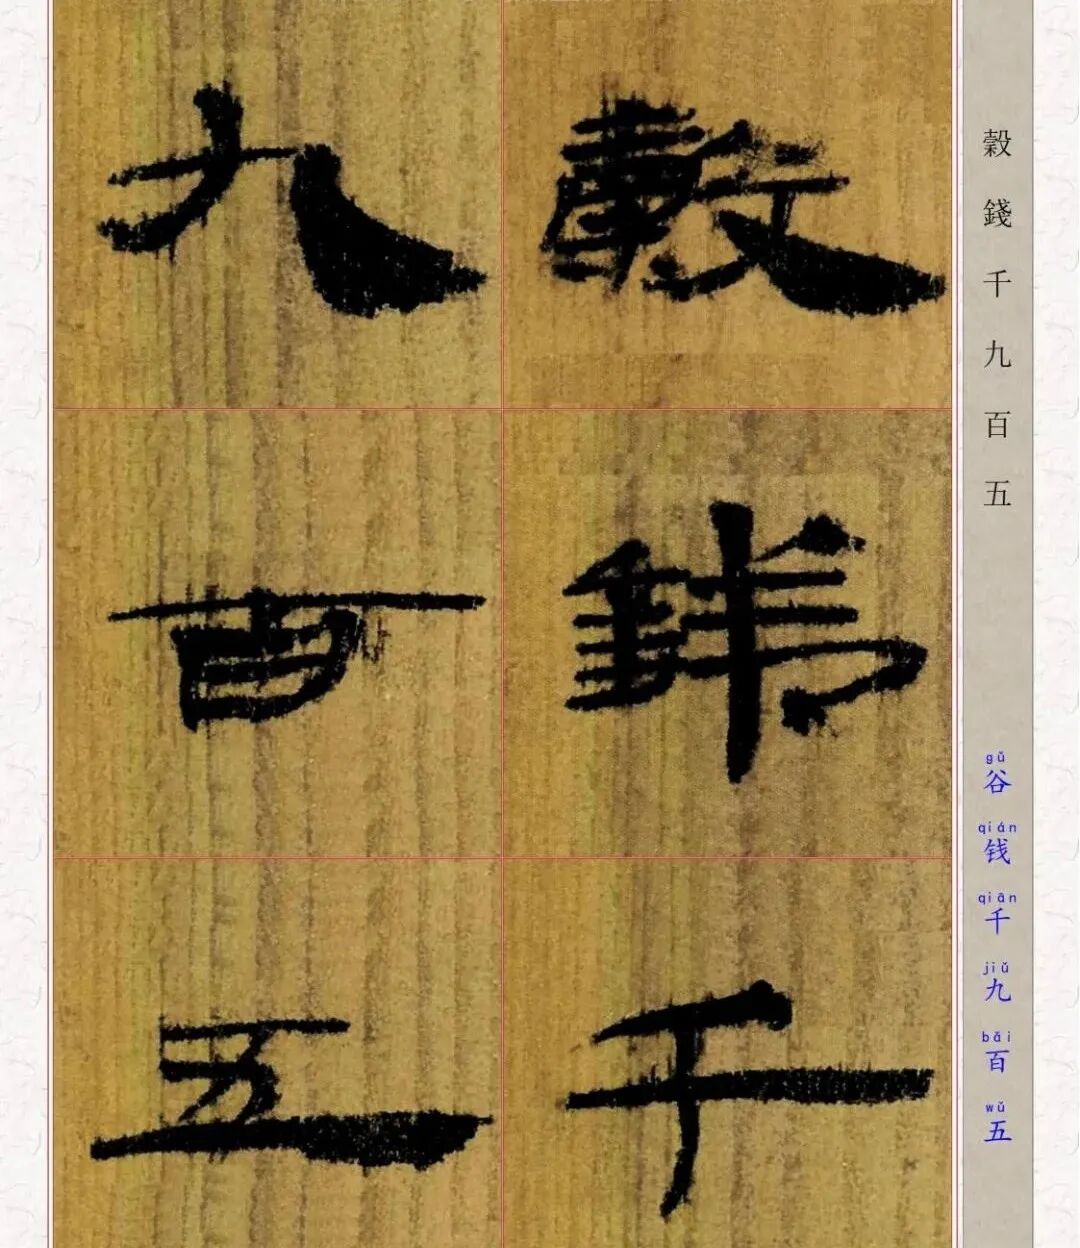 穀錢千
九百五
穀錢千九百五
gǔ qián qiān jiǔ bǎi wǔ
谷钱千九百五